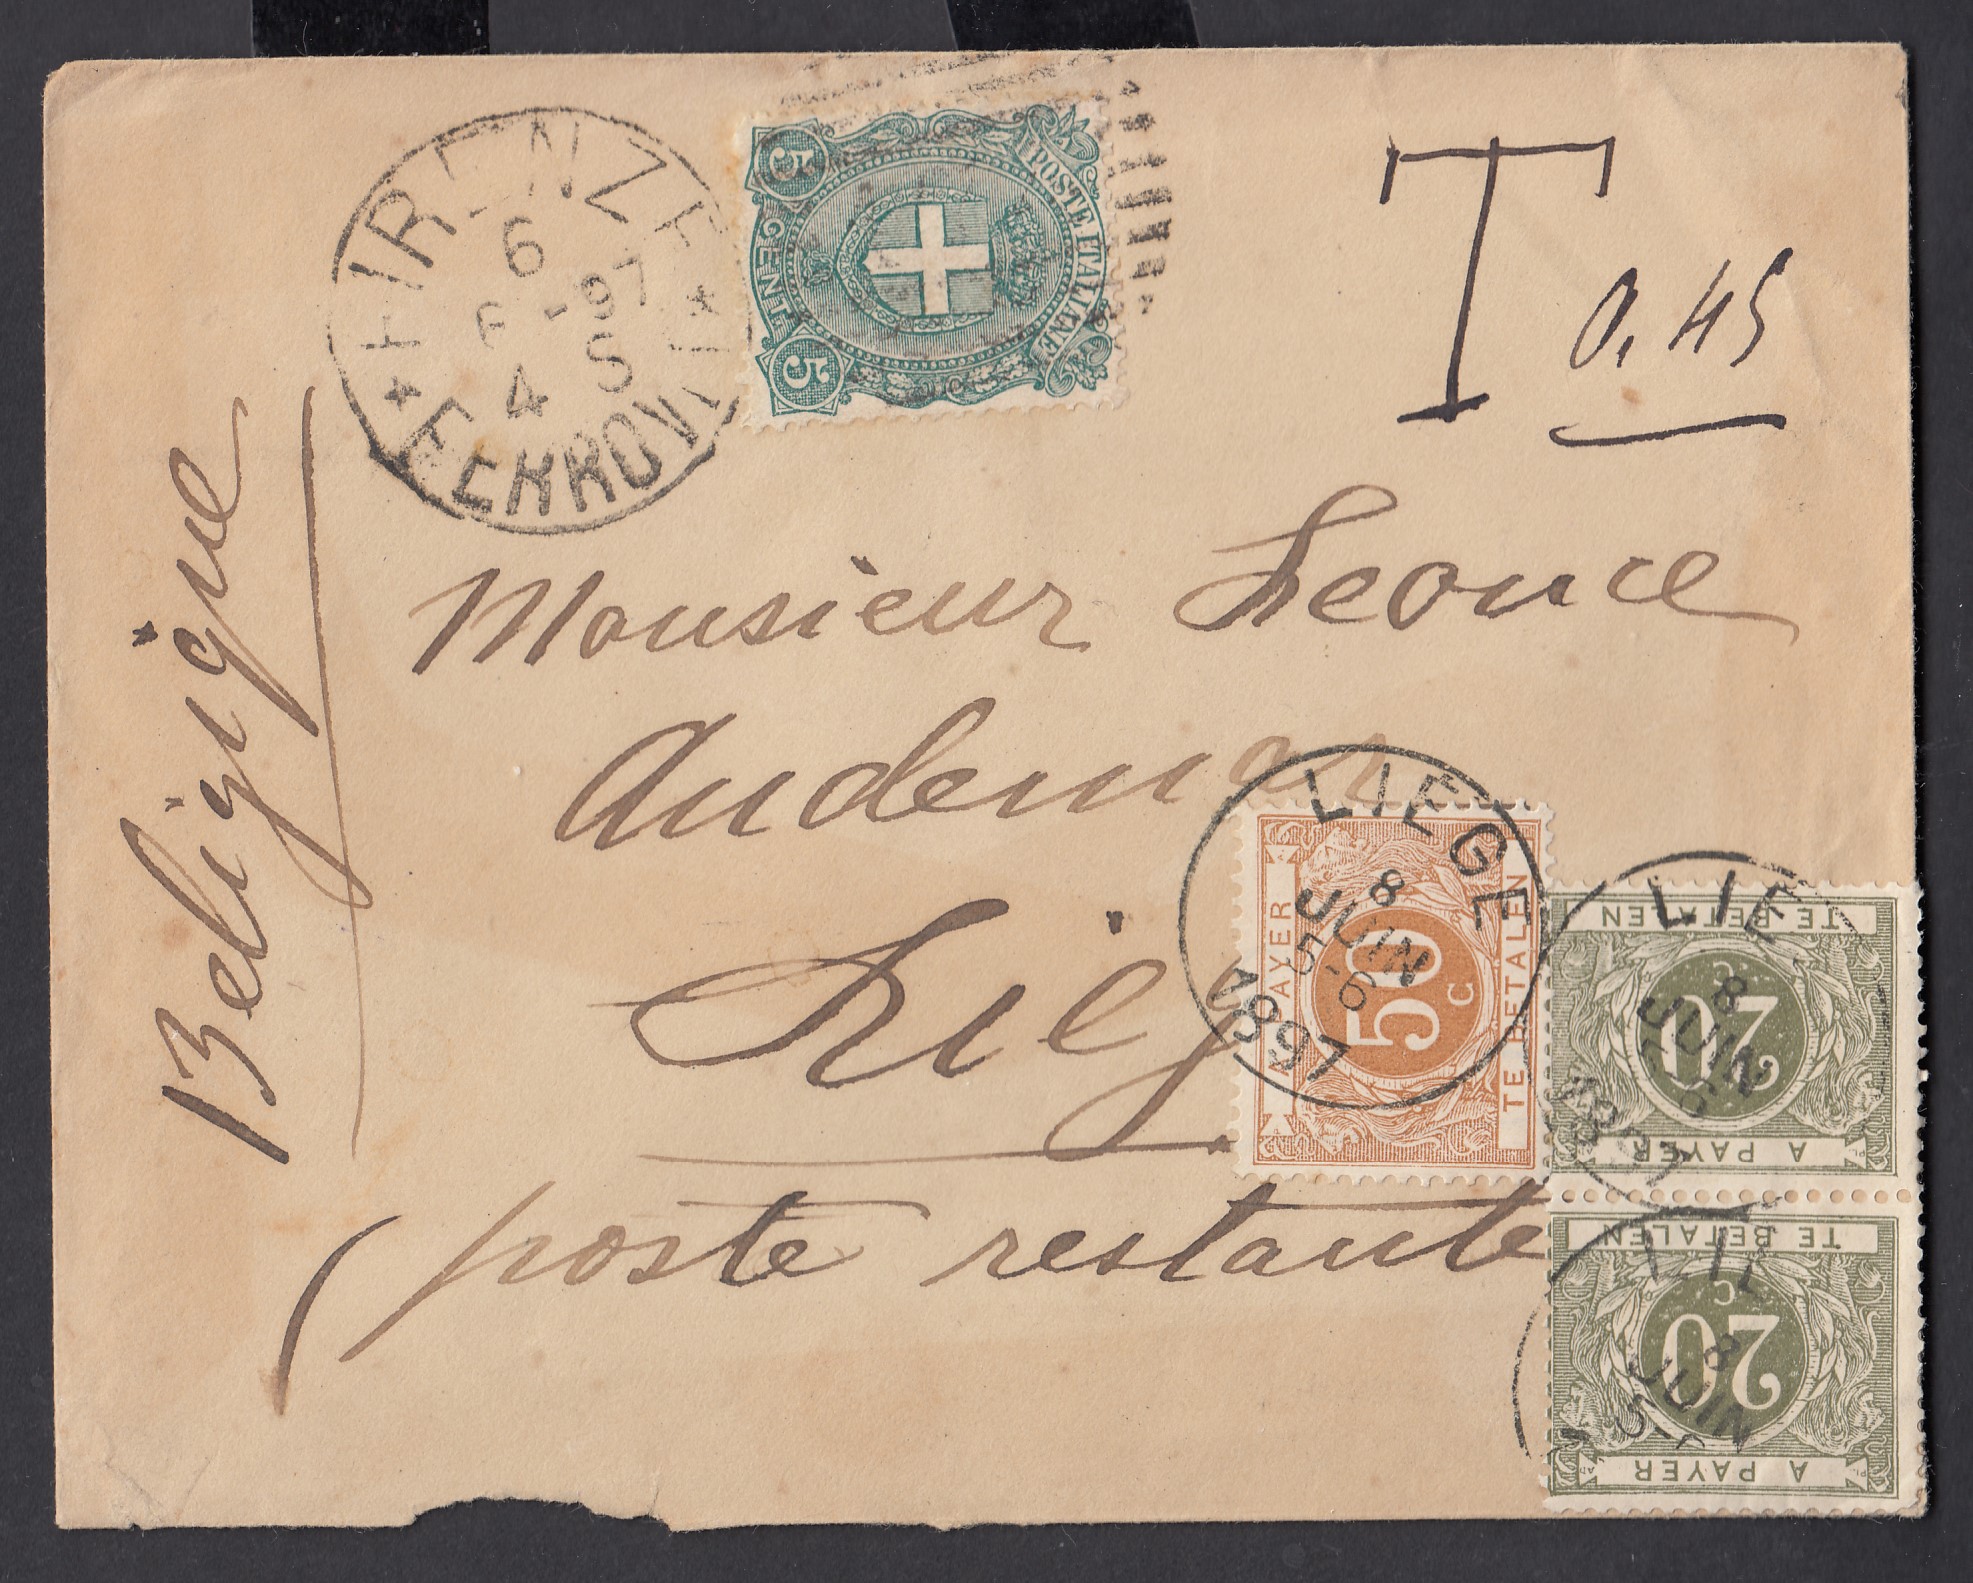 FIRENZE
6
6 -97
4 S
FERROVIA
POSTE ITALIANE
5 CENT. 5
T
0.45
Belgique
Monsieur Leonce
Audemar
Liég
(poste restante
LIEGE
8
JUIN
5-6
1897
A PAYER
50
C
TE BETALEN
LIE
8
JUIN
6
1897
TE BETALEN
20
C
A PAYER
LIE
8
JUIN
5-6
TE BETALEN
20
C
A PAYER